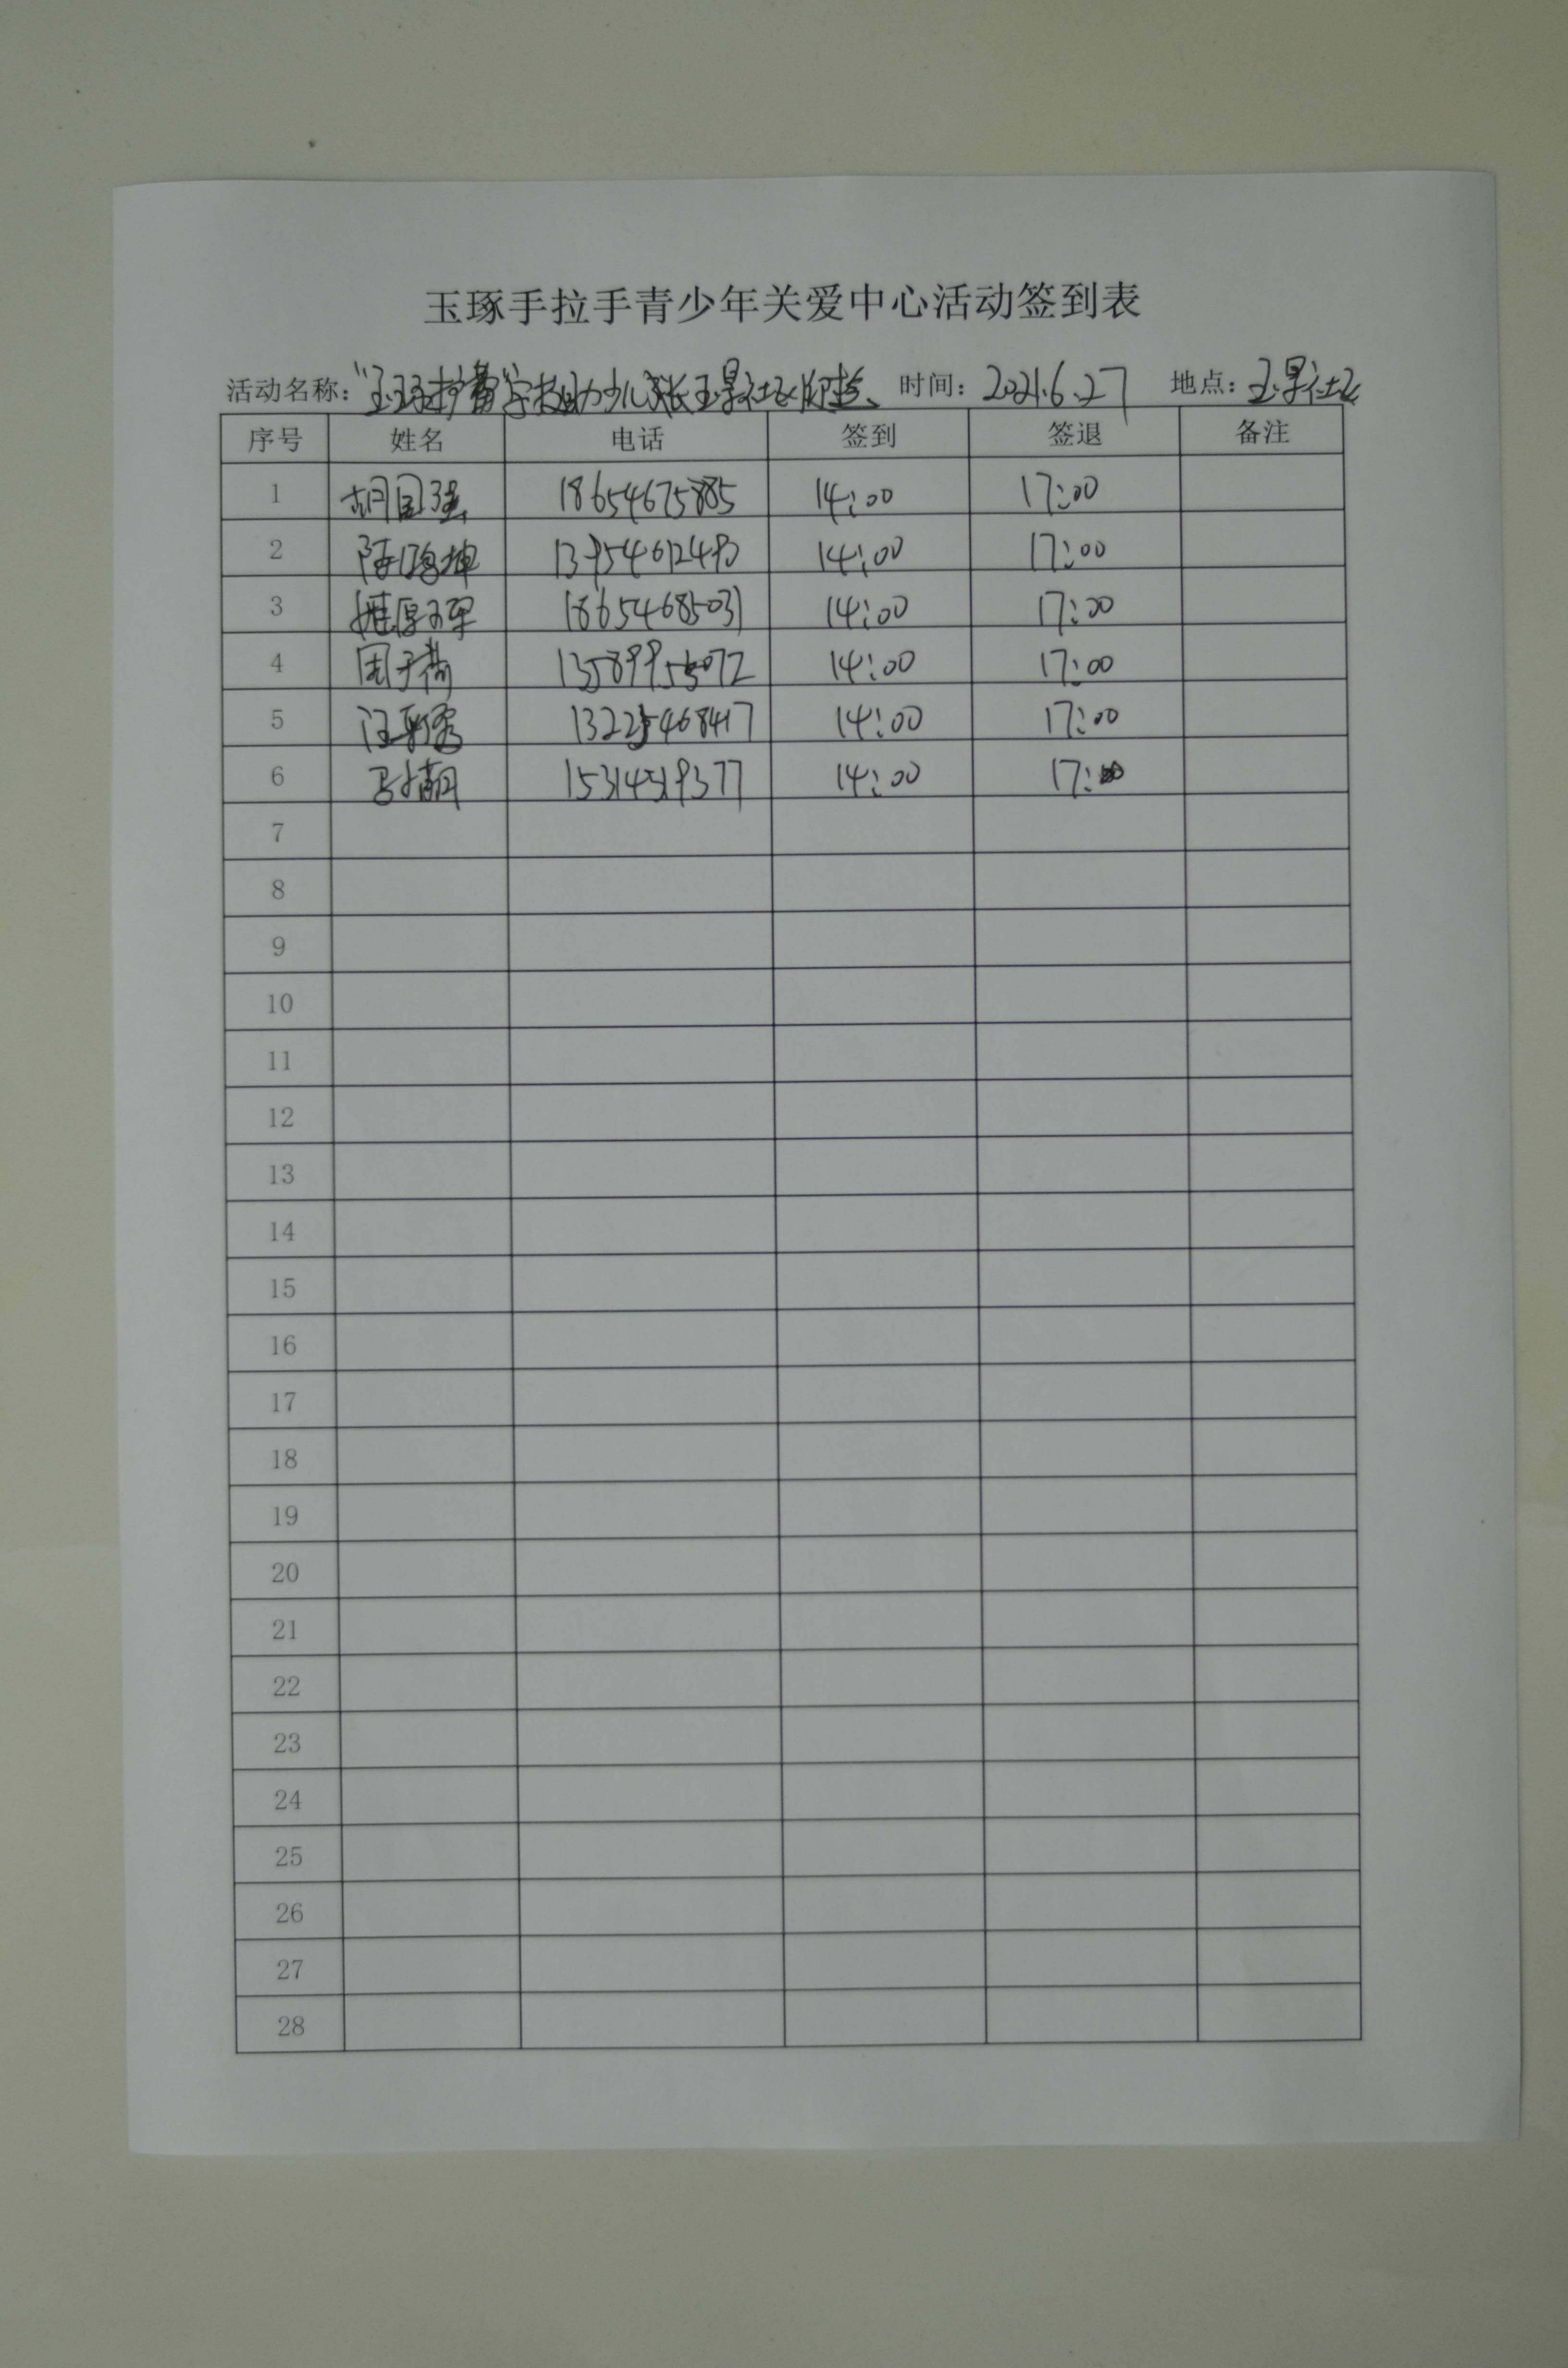 玉琢手拉手青少年关爱中心活动签到表
活动名称：“玉琢护蕾”学技助力少儿成长玉景社区 时间：2021.6.27 地点：玉景社区
序号 姓名 电话 签到 签退 备注
1 胡国强 18654675885 14:00 17:00
2 陆鸿坤 13954612493 14:00 17:00
3 18654685031 14:00 17:00
4 周子荷 14:00 17:00
5 汪 13225468417 14:00 17:00
6 15314319377 14:00 17:00
7
8
9
10
11
12
13
14
15
16
17
18
19
20
21
22
23
24
25
26
27
28